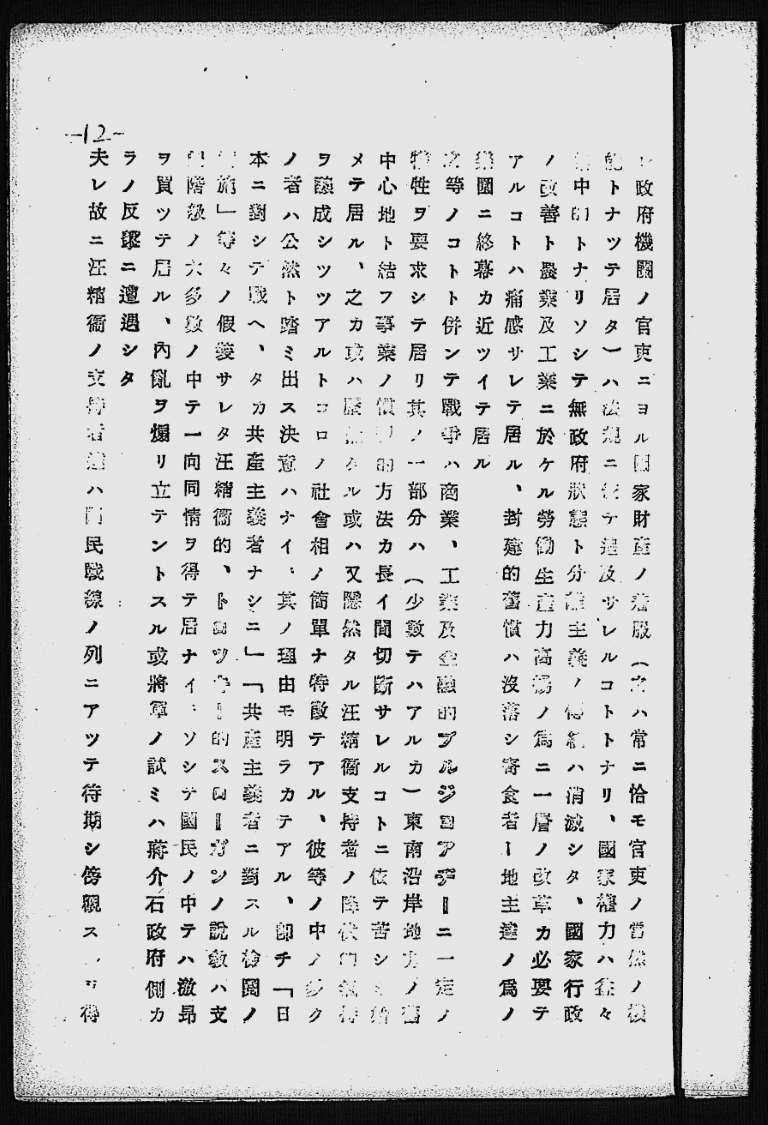 -12-
政府機關ノ官吏ニヨル國家財產ノ着服(之ハ常ニ恰モ官吏ノ當然ノ機
能トナツテ居タ)ハ法規ニ テ追及サレルコトトナリ、國家權力ハ益々
集中的トナリソシテ無政府狀態ト分 主義ノ傳統ハ消滅シタ、國家行政
ノ改善ト農業及工業ニ於ケル勞働生產力高揚ノ爲ニ一層ノ改革カ必要テ
アルコトハ痛感サレテ居ル、封建的舊慣ハ沒落シ寄食者ー地主達ノ爲ノ
樂園ニ終幕カ近ツイテ居ル
之等ノコトト併ンテ戰爭ハ商業、工業及金融的ブルジヨアヂーニ一定ノ
犧牲ヲ要求シテ居リ其ノ一部分ハ(少數テハアルカ)東南沿岸地方ノ舊
中心地ト結フ事業ノ慣習的方法カ長イ間切斷サレルコトニ依テ苦シミ始
メテ居ル、之カ或ハ タル或ハ又隱然タル汪精衞支持者ノ降伏的氣持
ヲ釀成シツツアルトコロノ社會相ノ簡單ナ特徵テアル、彼等ノ中ノ多ク
ノ者ハ公然ト踏ミ出ス決意ハナイ、其ノ理由モ明ラカテアル、卽チ「日
本ニ對シテ戰ヘ、タカ共產主義者ナシニ」「共產主義者ニ對スル檢閱ノ
實施」等々ノ假裝サレタ汪精衞的、トロツキー的スローガンノ說敎ハ支
配階級ノ大多數ノ中テ一向同情ヲ得テ居ナイ、ソシテ國民ノ中テハ激昂
ヲ買ツテ居ル、內亂ヲ煽リ立テントスル或將軍ノ試ミハ蔣介石政府側カ
ラノ反擊ニ遭遇シタ
夫レ故ニ汪精衞ノ支持者達ハ國民戰線ノ列ニアツテ待期シ傍觀ス ヲ得